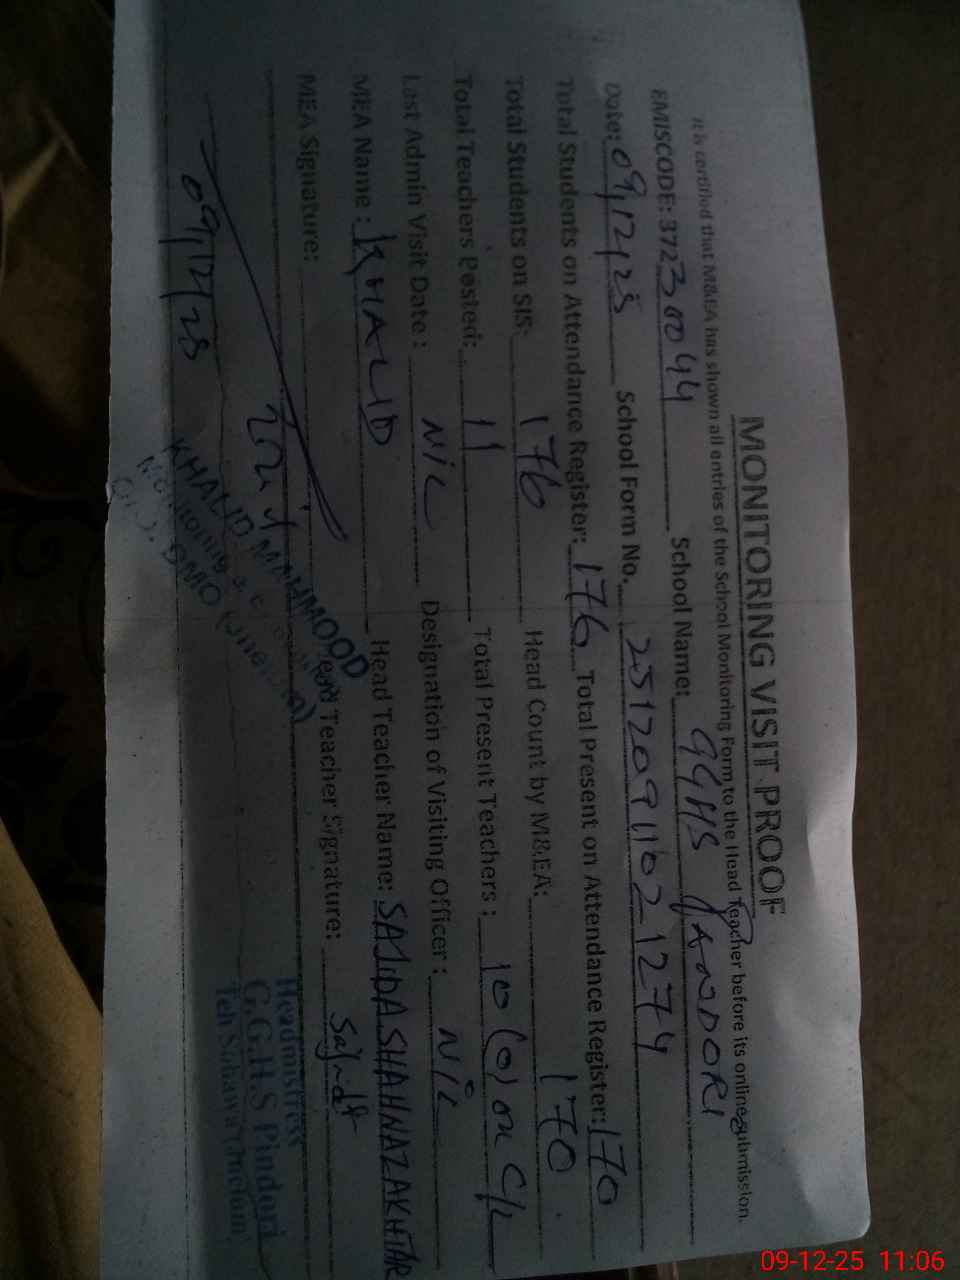 MONITORING VISIT PROOF
It is certified that M&EA has shown all entries of the School Monitoring Form to the Head Teacher before its online submission.
EMISCODE: 37230044 School Name: GGHS PANDORI
Date: 09/12/25 School Form No. 251209 1102 1274
Total Students on Attendance Register: 176 Total Present on Attendance Register: 170
Total Students on SIS: 176 Head Count by M&EA: 170
Total Teachers Posted: 11 Total Present Teachers: 10 (01 on C/L
Last Admin Visit Date: NiL Designation of Visiting Officer: NiL
MEA Name: KHALID Head Teacher Name: SAJIDA SHAHNAZ AKHTAR
MEA Signature: Head Teacher Signature: Sajida
09/12/25
KHALID MAHMOOD
Monitoring
DMO
Headmistress
G.G.H.S Pindori
Teh Sohawa Jhelum
09-12-25 11:06